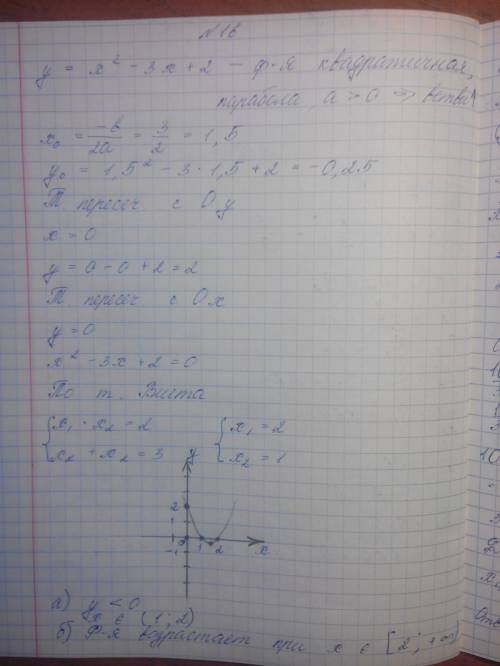 №16
y = x² - 3x + 2 - ф-я квадратичная,
парабола, a > 0 => ветви ↑
x₀ = -b/2a = 3/2 = 1,5
y₀ = 1,5² - 3·1,5 + 2 = -0,25
Т пересеч с Oy
x = 0
y = 0 - 0 + 2 = 2
Т пересеч с Ox
y = 0
x² - 3x + 2 = 0
По т. Виета
{x₁ · x₂ = 2 {x₁ = 2
{x₂ + x₂ = 3 {x₂ = 1
y
2
1
-1 0 1 2 x
а) y < 0
x ∈ (1; 2)
б) Ф-я возрастает при x ∈ [2; +∞)